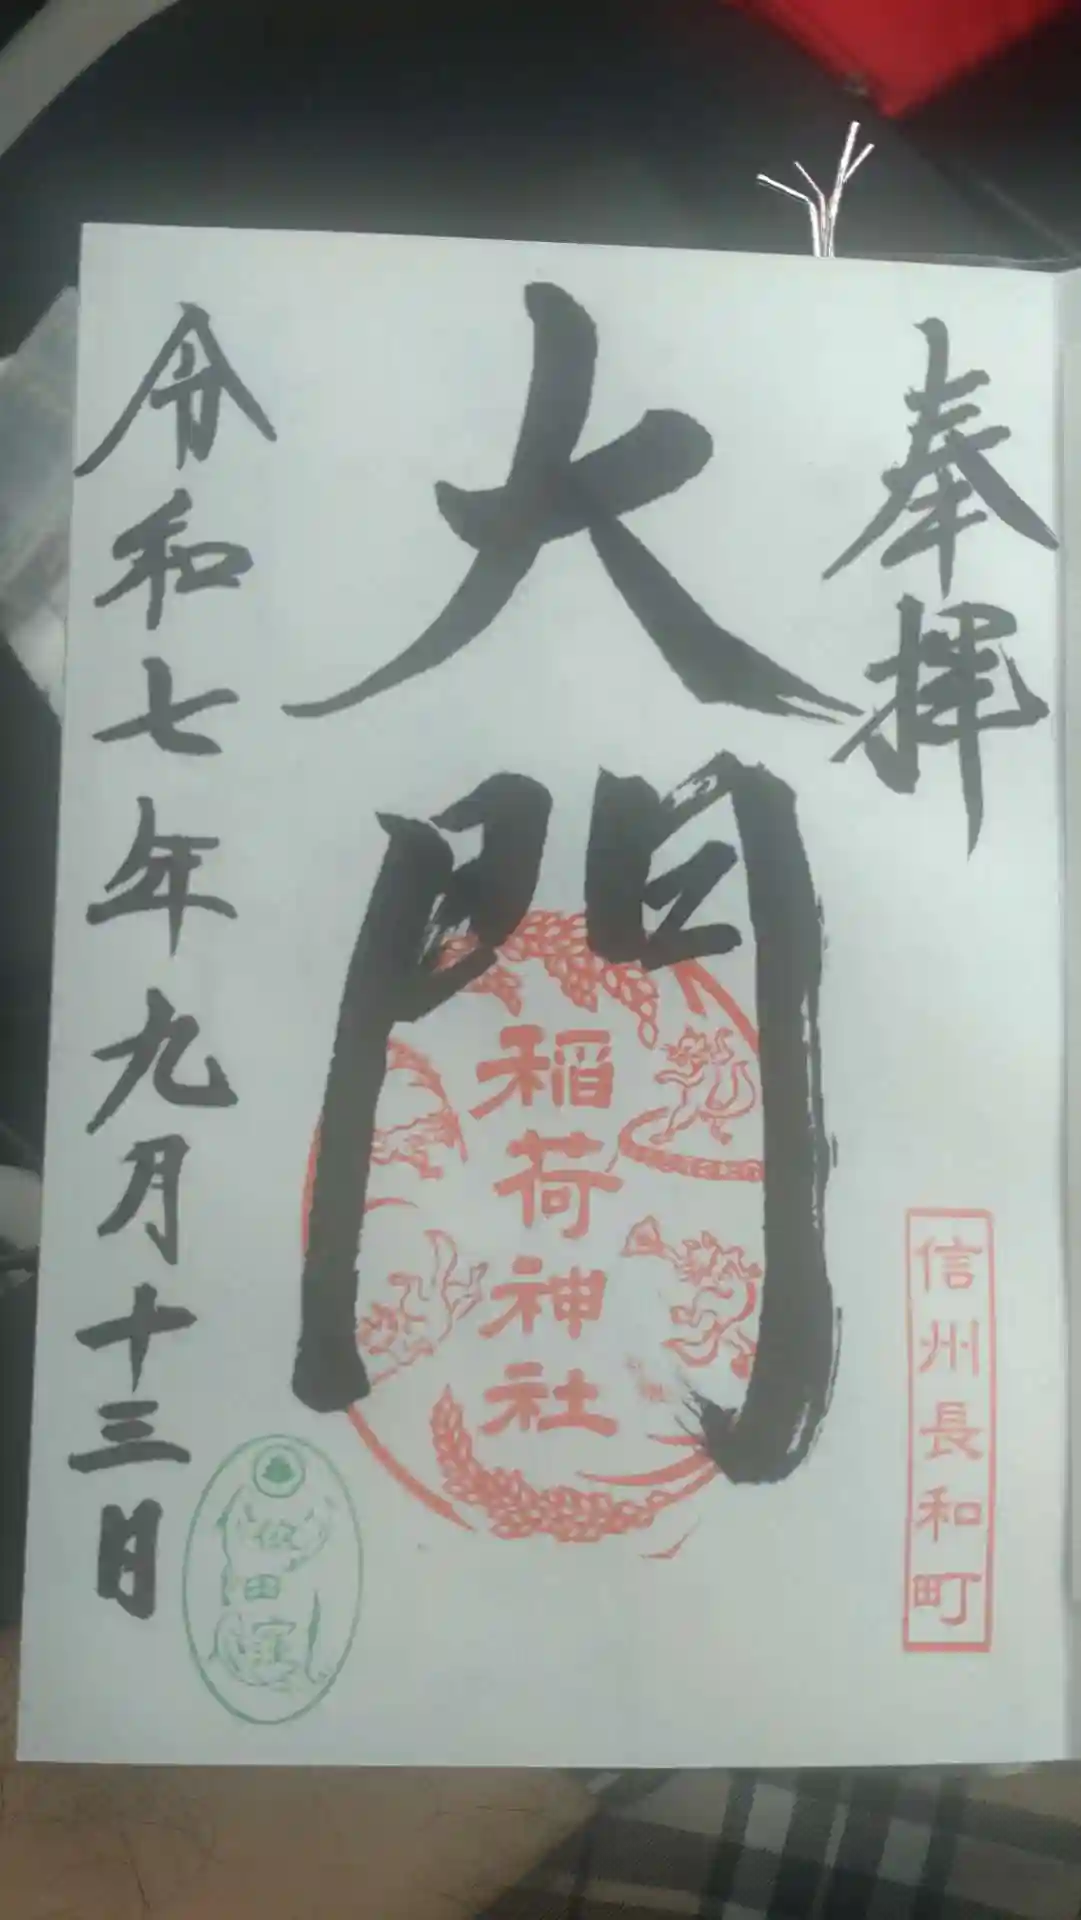 奉拝
信州長和町
大門
稲荷神社
令和七年九月十三日
依田窪